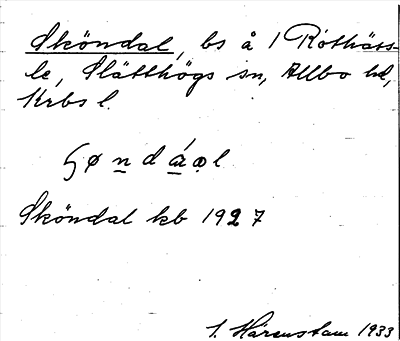 Sköndal, bs å 1 Rothäss-
le, Slätthögs sn, Allbo hd,
Krbs l.
ɧø n d á æ l
Sköndal kb 1927
S. Härenstam 1933